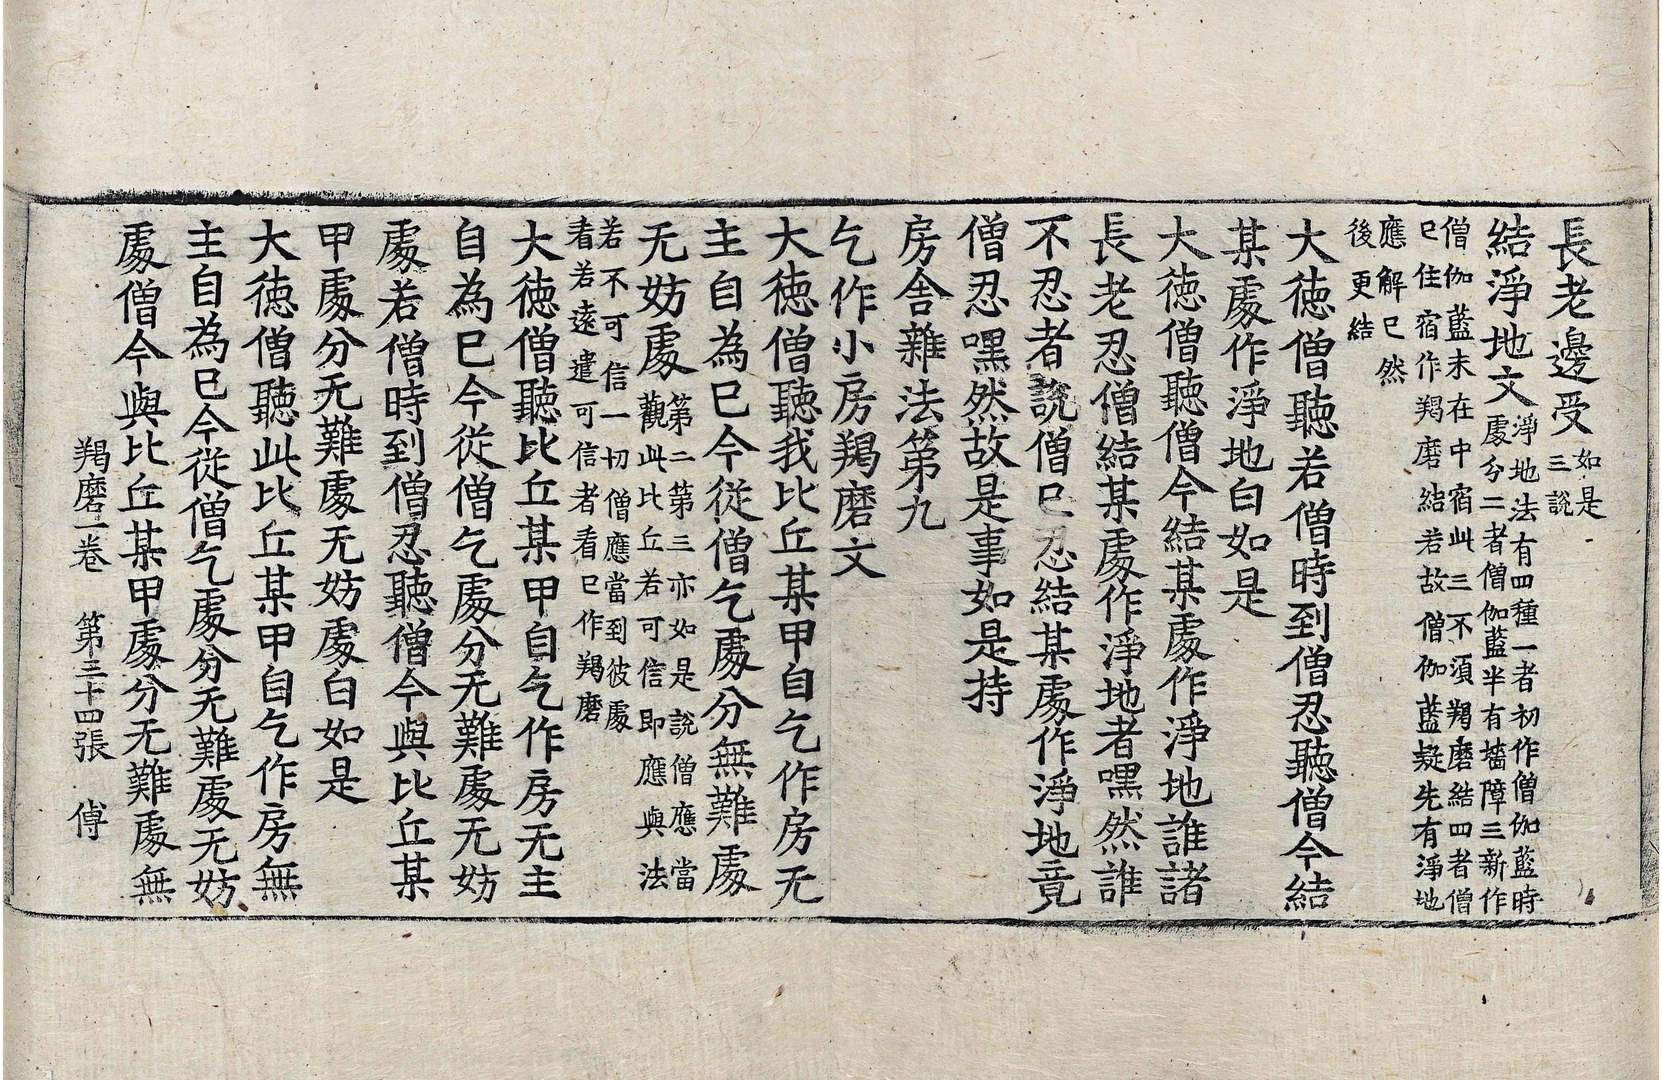 長老邊受如是三說
結淨地文淨地法有四種一者初作僧伽藍時處分二者僧伽藍半有墻障三新作
僧伽藍未在中宿此三不須羯磨結四者僧已住宿作羯磨結若故僧伽藍疑先有淨地
應解已然後更結
大徳僧聽若僧時到僧忍聽僧今結
某處作淨地白如是
大徳僧聽僧今結某處作淨地誰諸
長老忍僧結某處作淨地者嘿然誰
不忍者說僧已忍結某處作淨地竟
僧忍嘿然故是事如是持
房舍雜法第九
乞作小房羯磨文
大徳僧聽我比丘某甲自乞作房无
主自為已今從僧乞處分無難處
无妨處第二第三亦如是說僧應當觀此比丘若可信即應與法
若不可信一切僧應當到彼處看若遠遣可信者看已作羯磨
大徳僧聽比丘某甲自乞作房无主
自為已今從僧乞處分无難處无妨
處若僧時到僧忍聽僧今與比丘某
甲處分无難處无妨處白如是
大徳僧聽此比丘某甲自乞作房無
主自為已今從僧乞處分无難處无妨
處僧今與比丘某甲處分无難處無
羯磨一卷 第三十四張 傅